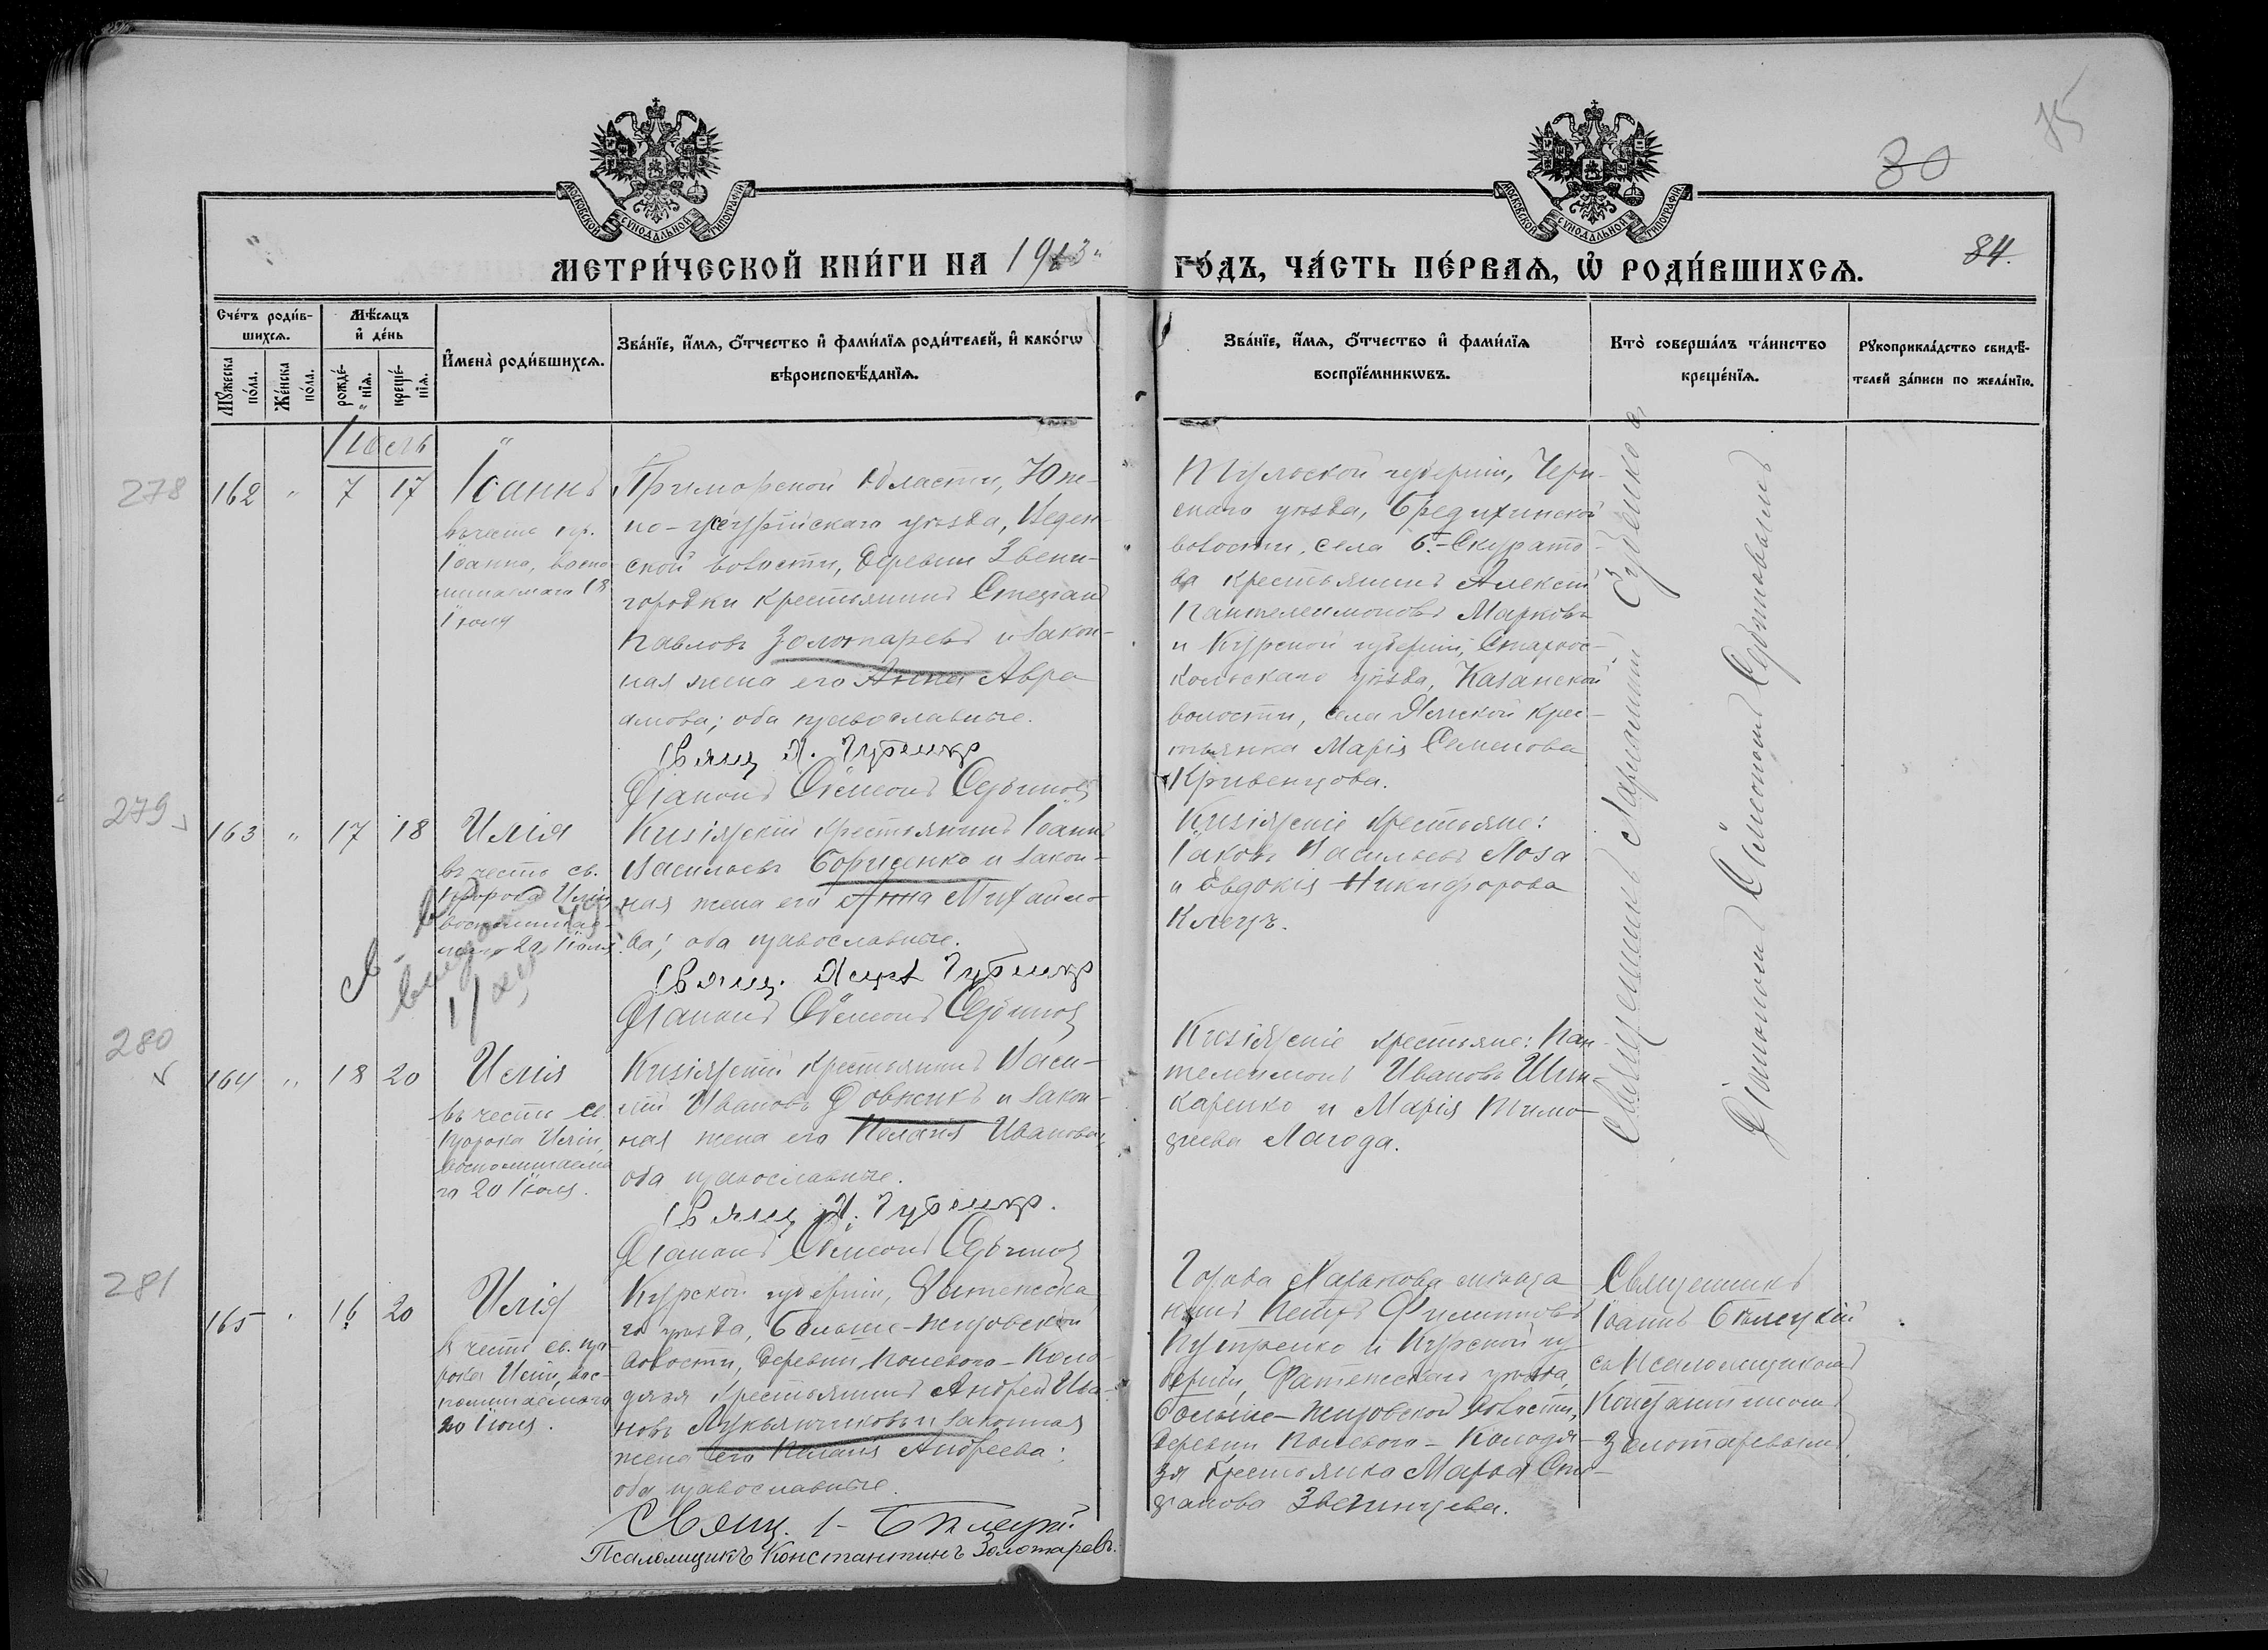 75
80
84.
МОСКОВСКОЙ СѴНОДАЛЬНОЙ ТИПОГРАФІИ
МОСКОВСКОЙ СѴНОДАЛЬНОЙ ТИПОГРАФІИ
МЕТРИ́ЧЕСКОЙ КНИ́ГИ НА 1913
ГО́ДЪ, ЧА́СТЬ ПЕ́РВАѦ, Ѡ҆ РОДИ́ВШИХСѦ.
Сче́тъ роди́в-
шихсѧ.
Мꙋжеска по́ла.
Же́нска по́ла.
Мѣ́сѧцъ
и҆ де́нь
рожде́-нїѧ.
креще́-нїѧ.
И҆мена̀ роди́вшихсѧ.
Зва́нїе, и҆́мѧ, ѻ҆́тчество и҆ фами́лїѧ роди́телей, и҆ како́гѡ
вѣроисповѣ́данїѧ.
Зва́нїе, и҆́мѧ, ѻ҆́тчество и҆ фами́лїѧ
воспрїе́мникѡвъ.
Кто̀ соверша́лъ та́инство
креще́нїѧ.
Рꙋкоприкла́дство свидѣ́-
телей за́писи по жела́нїю.
Іюль
278
162 " 7 17
Іоаннъ
въ честь пр.
Іоанна, воспо
минаемаго 18
Іюля
Приморской Области, Юж-
но-Уссурійскаго уѣзда, Веден-
ской волости, деревни Звени-
городки крестьянинъ Стефанъ
Павловъ Золотаревъ и закон-
ная жена его Анна Авра
амова; оба православные.
Свящ. Л. Губенко
Діаконъ Сѵмеонъ Сербиновъ
Тульской губерніи, Черн-
скаго уѣзда, Бредихинской
волости, села Б.-Скурато-
ва крестьянинъ Алексій
Пантелеимоновъ Марковъ
и Курской губерніи, Староос-
кольскаго уѣзда, Казанской
волости, села крес-
тьянка Марія Семенова
Кривенцова.
Священникъ Губенко съ
Діакономъ Сѵмеономъ Сербиновымъ
279
163 " 17 18
Илія
въ честь св.
пророка Иліи
воспоминае-
маго 20 Іюля
Кизіярскій крестьянинъ Іоаннъ
Васильевъ Борисенко и закон-
ная жена его Анна Михайло-
ва; оба православные.
Свящ. Губенко
Діаконъ Сѵмеонъ Сербиновъ
Кизіярскіе крестьяне:
Іаковъ Васильевъ Лоза
и Евдокія Никифорова
280
164 " 18 20
Илія
въ честь св.
пророка Иліи,
воспоминаема
го 20 Іюля.
Кизіярскій крестьянинъ Васи-
лій Ивановъ Довжикъ и закон-
ная жена его Пелагія Иванова;
оба православные.
Свящ. Л. Губенко.
Діаконъ Сѵмеонъ Сербиновъ
Кизіярскіе крестьяне: Пан-
телеимонъ Ивановъ Шин-
каренко и Марія Тимо-
феева Лагода.
281
165 " 16 20
Илія
въ честь св. про
рока Иліи, вос-
поминаемаго
20 Іюля.
Курской губерніи, Фатежска
го уѣзда, Больше-Жировской
волости, деревни Полевого-Коло-
дязя крестьянинъ Андрей Ива-
новъ Лукьянчиковъ и законная
жена его Пелагія Андреева;
оба православные.
Свящ. І. Бѣлецкій
Псаломщикъ Константинъ Золотаревъ.
Города мѣща
нинъ Петръ Филипповъ
и Курской гу
берніи, Фатежскаго уѣзда,
Больше-Жировской волости,
деревни Полевого-Колодя-
зя крестьянка Марѳа Сте-
фанова Звегинцева.
Священникъ
Іоаннъ Бѣлецкій
съ Псаломщикомъ
Константиномъ
Золотаревымъ.